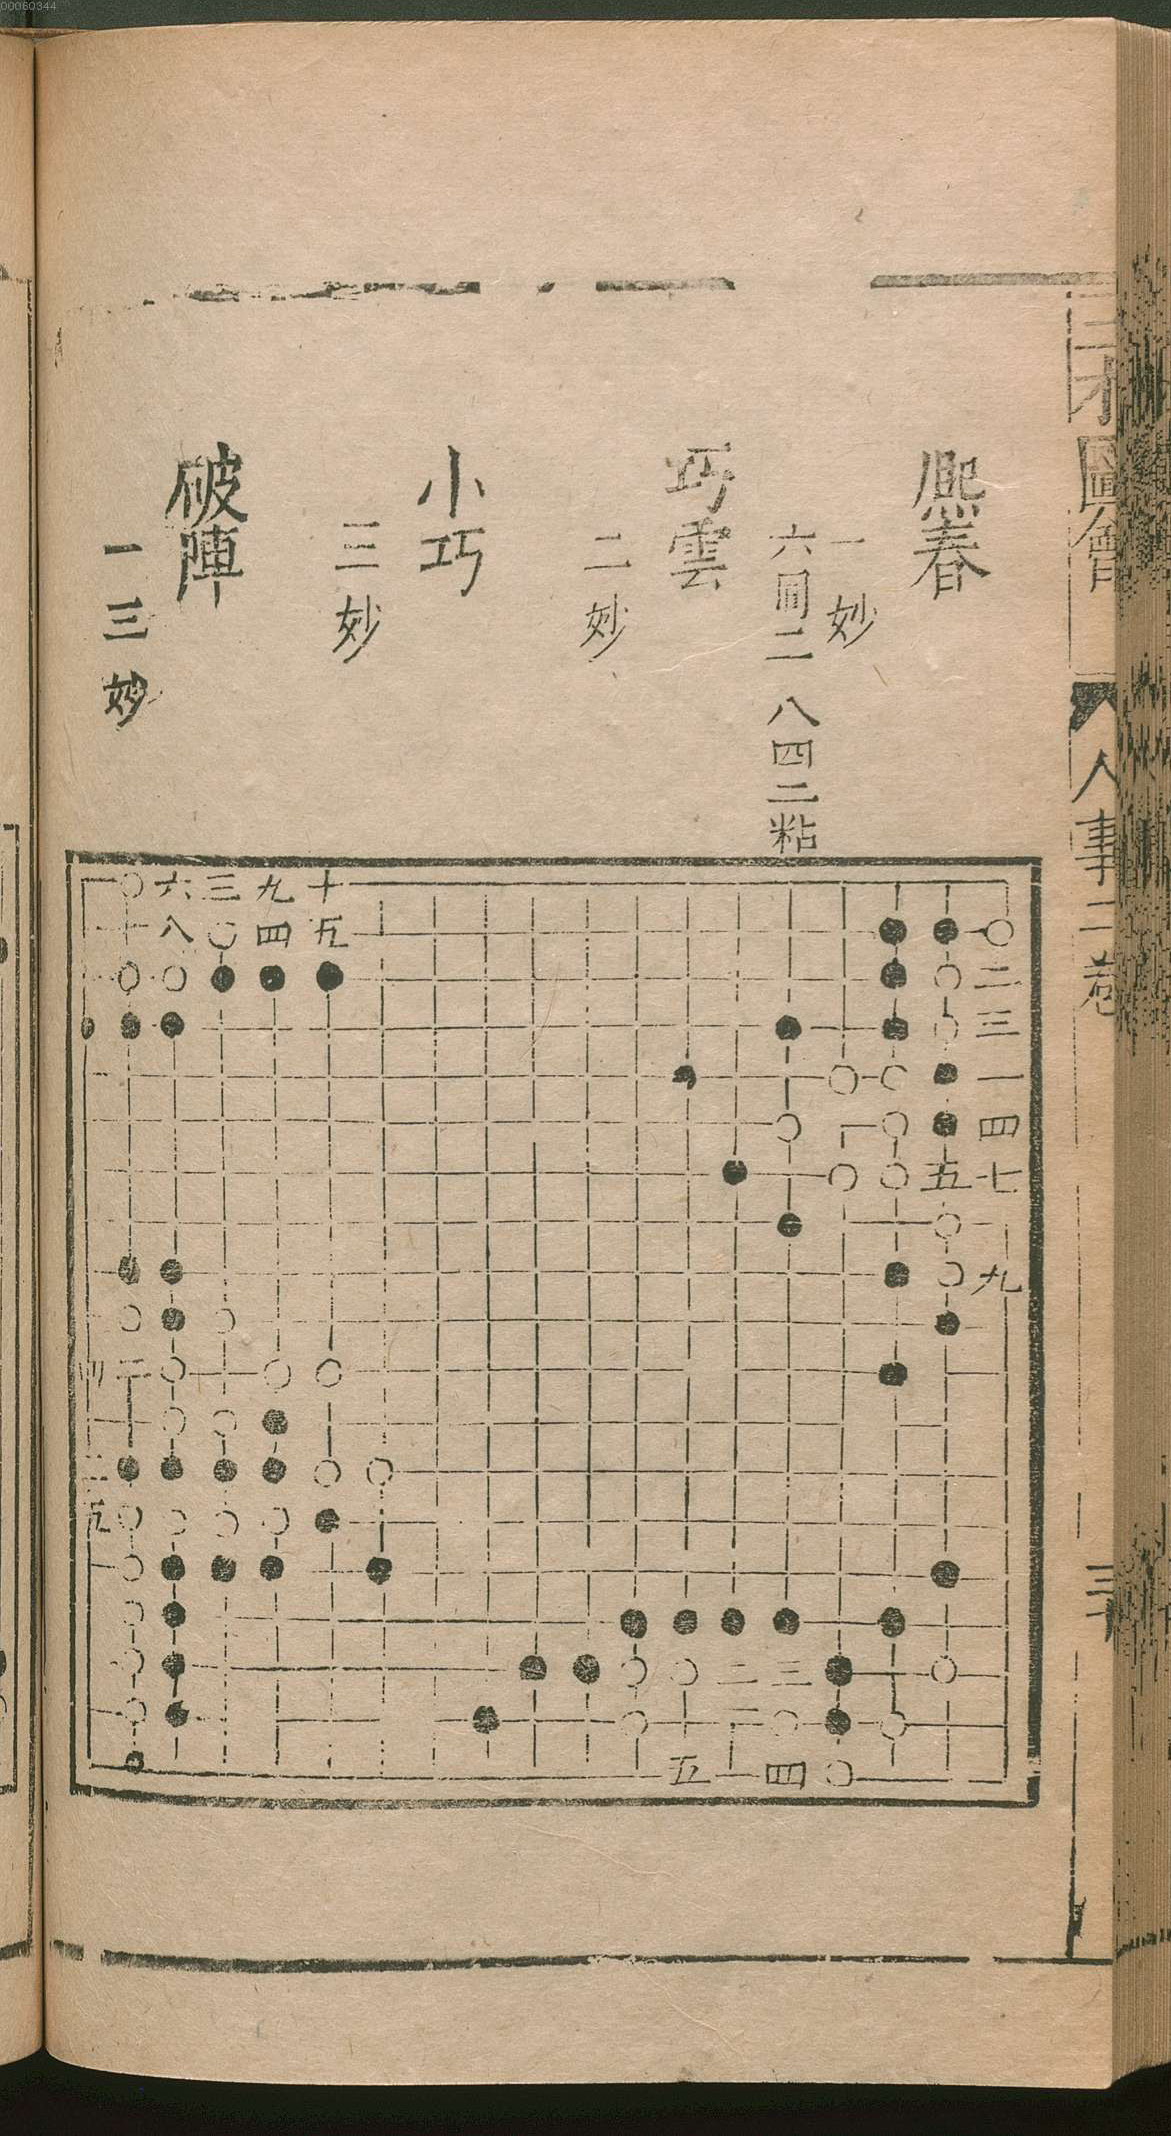 00060344
三才圖會
人事二卷
熙春
一妙
六同二 八四二粘
巧雲
二妙
小巧
三妙
破陣
一三妙
六三九十
八四五
二
三
一
四
五七
九
二
五
二三
五四